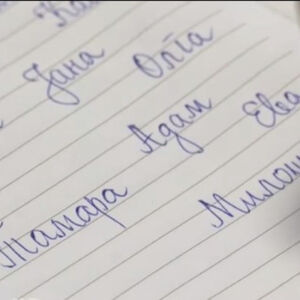 Јана Олга
Адам Ева
Тамара Милош